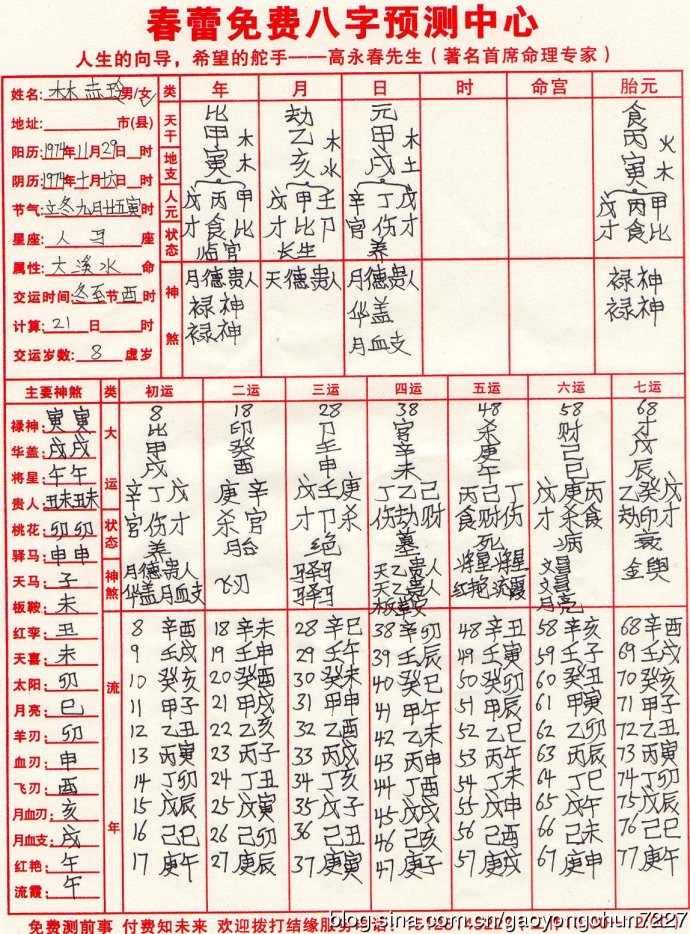 春蕾免费八字预测中心
人生的向导，希望的舵手——高永春先生（著名首席命理专家）
姓名: 林 玲 男/女 类 年 月 日 时 命宫 胎元
地址: 市(县)
阳历: 1974年11月29日 时
阴历: 1974年十月十六日 时
节气: 立冬九月廿五寅时
星座: 人马 座
属性: 大溪水 命
交运时间: 冬至节酉时
计算: 21 日 时
交运岁数: 8 虚岁
天干 比 劫 元 食
甲木 乙木 甲木 丙火
地支 寅木 亥水 戌土 寅木
人元 戊丙甲 戊甲壬 辛丁戊 戊丙甲
状态 才食比 才比卩 官伤才 才食比
临官 长生 养
神煞 月德贵人 天德贵人 月德贵人 禄神
禄神 华盖 禄神
禄神 月血支
主要神煞 类 初运 二运 三运 四运 五运 六运 七运
禄神: 寅寅
华盖: 戌戌
将星: 午午
贵人: 丑未丑未
桃花: 卯卯
驿马: 申申
天马: 子
板鞍: 未
红孪: 丑
天喜: 未
太阳: 卯
月亮: 巳
羊刃: 卯
血刃: 申
飞刃: 酉
月血刃: 亥
月血支: 戌
红艳: 午
流霞: 午
大运 8 18 28 38 48 58 68
比 印 卩 官 杀 财 才
甲 癸 壬 辛 庚 己 戊
戌 酉 申 未 午 巳 辰
辛丁戊 庚辛 戊壬庚 丁乙己 丙己丁 戊庚丙 乙癸戊
状态 官伤才 杀官 才卩杀 伤劫财 食财伤 才杀食 劫印才
养 胎 绝 墓 死 病 衰
神煞 月德贵人 飞刃 驿马 天乙贵人 将星将星 文昌 金舆
华盖月血支 驿马 天乙贵人 红艳流霞 文昌
月亮
流年
8 辛酉 18 辛未 28 辛巳 38 辛卯 48 辛丑 58 辛亥 68 辛酉
9 壬戌 19 壬申 29 壬午 39 壬辰 49 壬寅 59 壬子 69 壬戌
10 癸亥 20 癸酉 30 癸未 40 癸巳 50 癸卯 60 癸丑 70 癸亥
11 甲子 21 甲戌 31 甲申 41 甲午 51 甲辰 61 甲寅 71 甲子
12 乙丑 22 乙亥 32 乙酉 42 乙未 52 乙巳 62 乙卯 72 乙丑
13 丙寅 23 丙子 33 丙戌 43 丙申 53 丙午 63 丙辰 73 丙寅
14 丁卯 24 丁丑 34 丁亥 44 丁酉 54 丁未 64 丁巳 74 丁卯
15 戊辰 25 戊寅 35 戊子 45 戊戌 55 戊申 65 戊午 75 戊辰
16 己巳 26 己卯 36 己丑 46 己亥 56 己酉 66 己未 76 己巳
17 庚午 27 庚辰 37 庚寅 47 庚子 57 庚戌 67 庚申 77 庚午
免费测前事 付费知未来 欢迎拨打结缘服务
blog.sina.com.cn/gaoyongchun7227